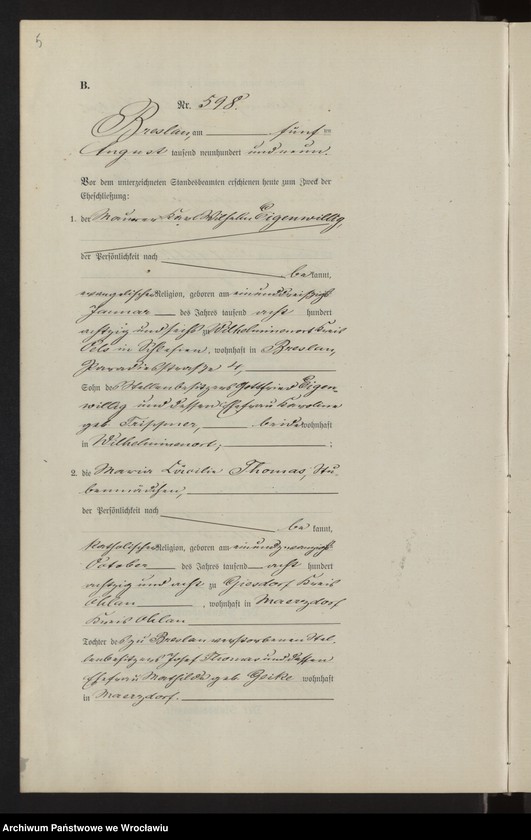 5
B.
Nr. 598.
Breslau, am fünf ten
August tausend neunhundert und neun.
Vor dem unterzeichneten Standesbeamten erschienen heute zum Zweck der
Eheschließung:
1. der Maurer Karl Wilhelm Eigenwillig,
der Persönlichkeit nach
be kannt,
evangelischer Religion, geboren am einunddreißigsten
Januar des Jahres tausend acht hundert
achtzig und sechs zu Wilhelminenort Kreis
Oels in Schlesien, wohnhaft in Breslau,
Paradiesstraße 4,
Sohn des Stellenbesitzers Gottfried Eigen-
willig und dessen Ehefrau Karoline
geb. beide wohnhaft
in Wilhelminenort;
2. die Maria Cäcilie Thomas, Stu-
benmädchen,
der Persönlichkeit nach
be kannt,
katholischer Religion, geboren am einundzwanzigsten
October des Jahres tausend acht hundert
achtzig und acht zu Giesdorf Kreis
Ohlau, wohnhaft in Maerzdorf
Kreis Ohlau
Tochter des zu Breslau verstorbenen Stel-
lenbesitzers Josef Thomas und dessen
Ehefrau Mathilde geb. wohnhaft
in Maerzdorf.
Archiwum Państwowe we Wrocławiu